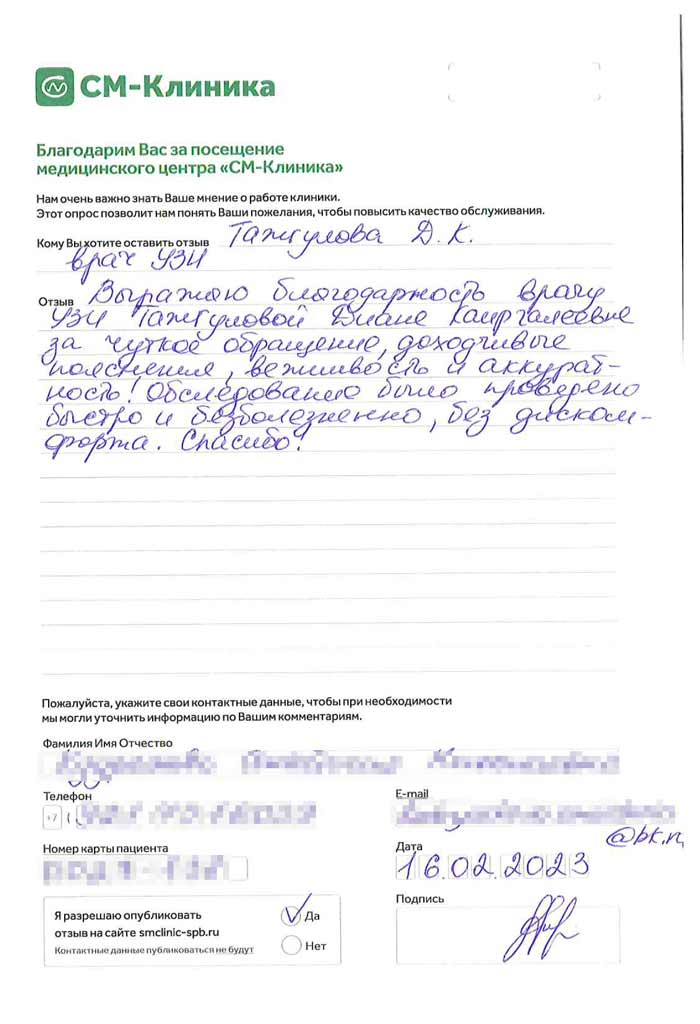 СМ-Клиника
Благодарим Вас за посещение
медицинского центра «СМ-Клиника»
Нам очень важно знать Ваше мнение о работе клиники.
Этот опрос позволит нам понять Ваши пожелания, чтобы повысить качество обслуживания.
Кому Вы хотите оставить отзыв Тажгулова Д. К.
врач УЗИ
Отзыв Выражаю благодарность врачу
УЗИ Тажгуловой Диане Каиргалеевне
за чуткое обращение, доходчивые
пояснения, вежливость и аккурат-
ность! Обследование было проведено
быстро и безболезненно, без диском-
форта. Спасибо!
Пожалуйста, укажите свои контактные данные, чтобы при необходимости
мы могли уточнить информацию по Вашим комментариям.
Фамилия Имя Отчество
Телефон
E-mail
+7 (
@bk.r
Номер карты пациента
Дата
16.02.2023
Я разрешаю опубликовать
отзыв на сайте smclinic-spb.ru
Контактные данные публиковаться не будут
Да
Нет
Подпись